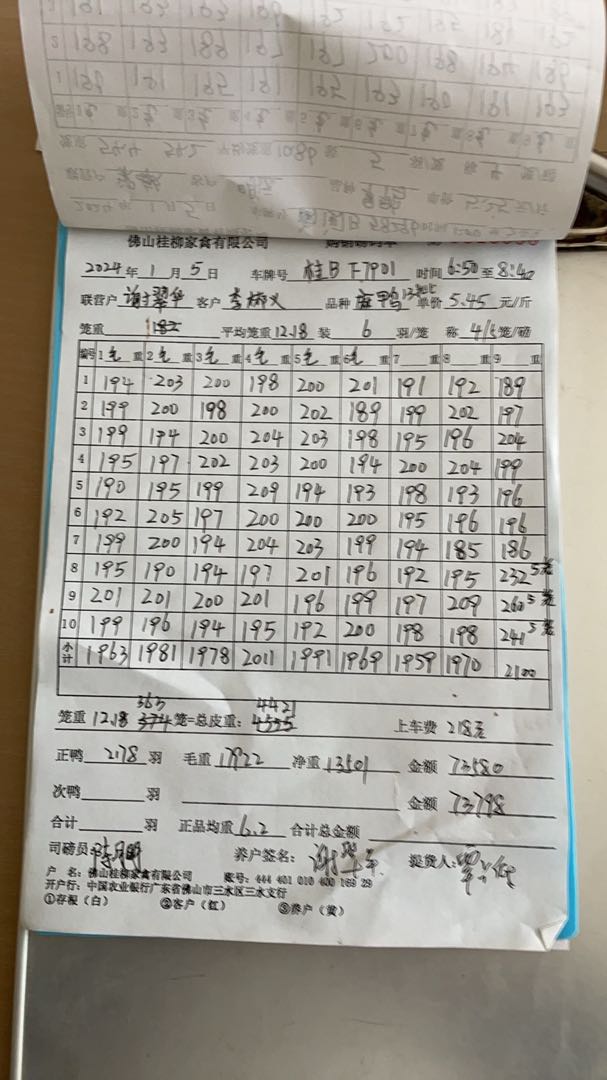 佛山桂柳家禽有限公司
2024年1月5日 车牌号 桂B F7901 时间6:50至8:40
联营户 谢翠华 客户 品种 麻鸭 单价 5.45 元/斤
笼重 182 平均笼重12.18 装 6 羽/笼 称 4/5笼/磅
编号 1毛重 2毛重 3毛重 4毛重 5毛重 6毛重 7 重 8 重 9 重
1 194 203 200 198 200 201 191 192 189
2 199 200 198 200 202 189 199 202 197
3 199 194 200 204 203 198 195 196 204
4 195 197 202 203 200 194 200 204 199
5 190 195 199 209 194 193 198 193 196
6 192 205 197 200 200 200 195 196 196
7 199 200 194 204 203 199 194 185 186
8 195 190 194 197 201 196 192 195 232 5笼
9 201 201 200 201 196 199 197 209 260 5笼
10 199 196 194 195 192 200 198 198 241 5笼
小计 1963 1981 1978 2011 1991 1969 1959 1970 2100
363 4421
笼重 12.18 374 笼=总皮重: 4555 上车费 218元
正鸭 2178 羽 毛重 17922 净重 13501 金额 73580
次鸭 羽 金额 73798
合计 羽 正品均重 6.2 合计总金额
司磅员: 养户签名: 谢翠华 提货人:
户 名: 佛山桂柳家禽有限公司 账号: 444 401 010 400 169 29
开户行: 中国农业银行广东省佛山市三水区三水支行
①存根(白) ②客户(红) ③养户(黄)